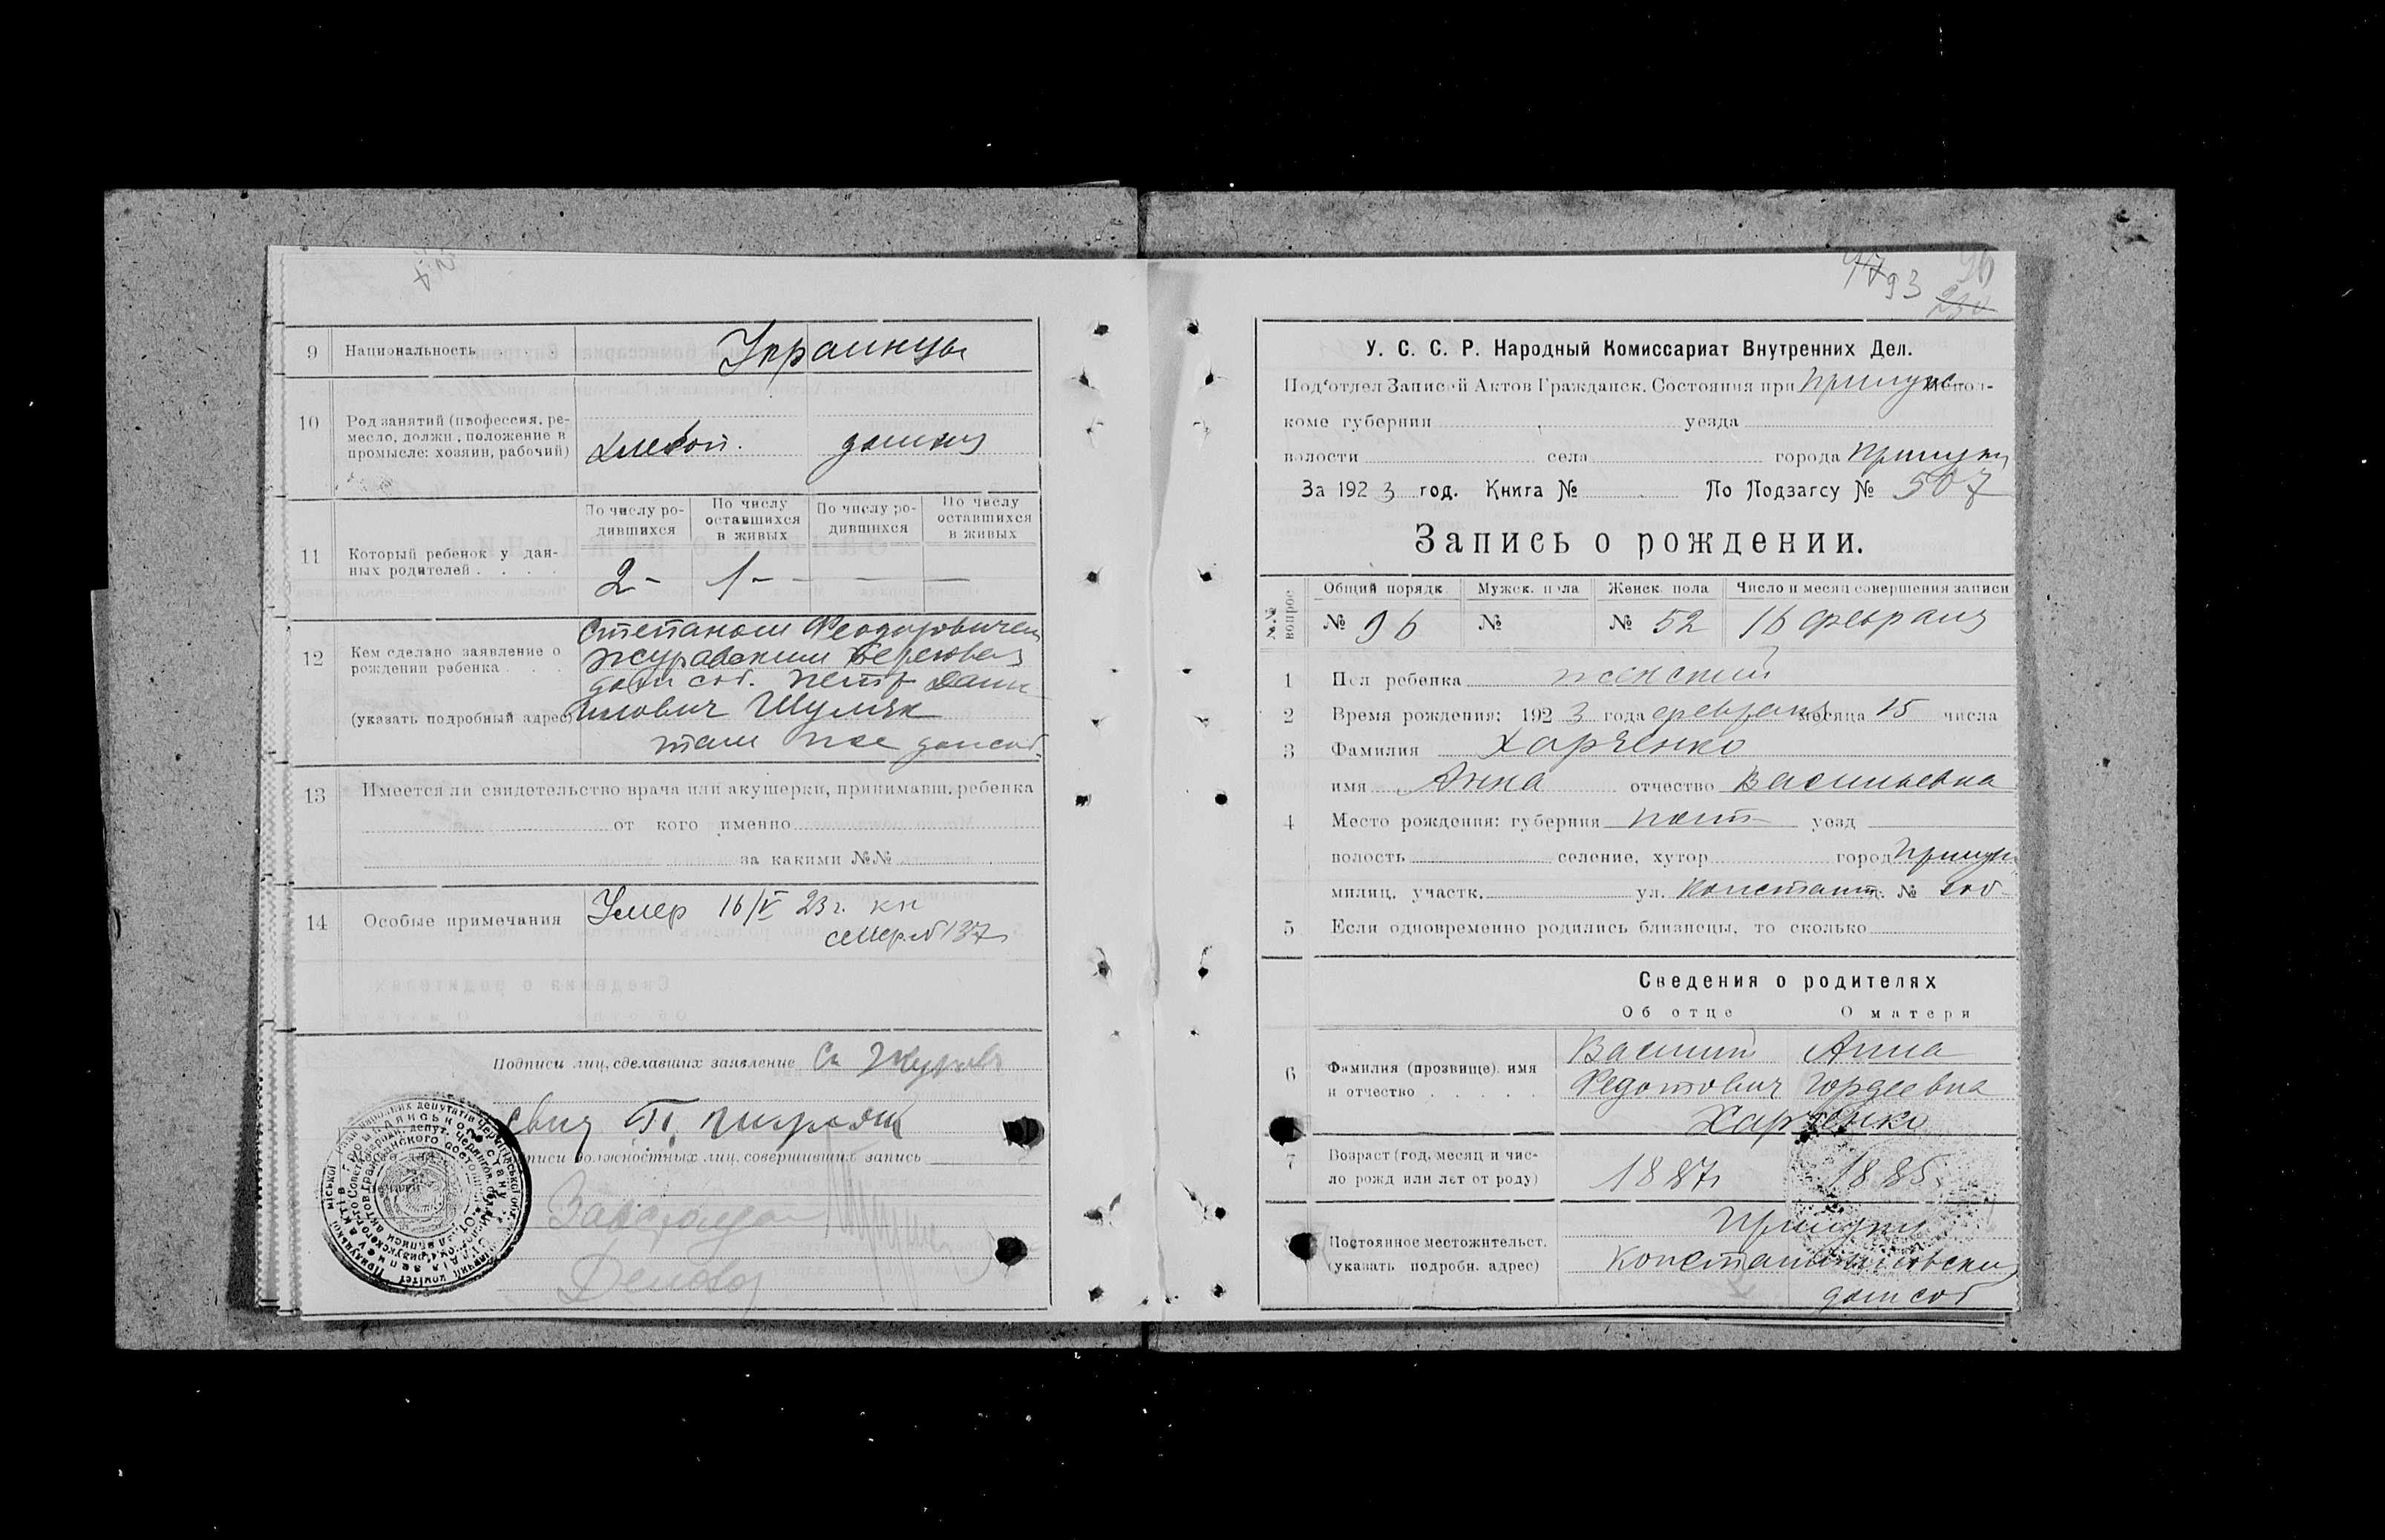 9 Национальность Украинцы
10 Род занятий (профессия, ре-
месло, должн., положение в
промысле: хозяин, рабочий)
хлебоп. домхоз
11 Который ребенок у дан-
ных родителей
По числу ро-
дившихся
По числу
оставшихся
в живых
По числу ро-
дившихся
По числу
оставшихся
в живых
2 - 1 - — —
12 Кем сделано заявление о
рождении ребенка
(указать подробный адрес)
Степаном Феодоровичем
Журавским
дом соб. Петр Дани-
лович Шуляк
там же дом соб.
13 Имеется ли свидетельство врача или акушерки, принимавш. ребенка
от кого именно
за какими №№
14 Особые примечания
Умер 16/V 23 г. кн
смер. № 137
Подписи лиц, сделавших заявление Ст Журавс
П.
писи должностных лиц, совершивших запись
Делов
93 96
У. С. С. Р. Народный Комиссариат Внутренних Дел.
Под'отдел Записей Актов Гражданск. Состояния при Прилукс Испол-
коме губернии уезда
волости села города Прилуки
За 1923 год. Книга № По Подзагсу № 507
Запись о рождении.
№№ вопрос
Общий порядк Мужск. пола Женск. пола Число и месяц совершения записи
№ 96 № № 52 16 февраля
1 Пол ребенка женский
2 Время рождения: 1923 года февраля месяца 15 числа
3 Фамилия Харченко
имя Анна отчество Васильевна
4 Место рождения: губерния Полт уезд
волость селение, хутор город Прилуки
милиц. участк. ул. Константи д. № соб
5 Если одновременно родились близнецы, то сколько
Сведения о родителях
Об отце О матери
6 Фамилия (прозвище), имя
и отчество
Василий Анна
Федотович Гордеевна
Харченко
7 Возраст (год, месяц и чис-
ло рожд или лет от роду)
1887 1885
Постоянное местожительст.
(указать подробн. адрес)
Прилуки
Константиновски
дом соб